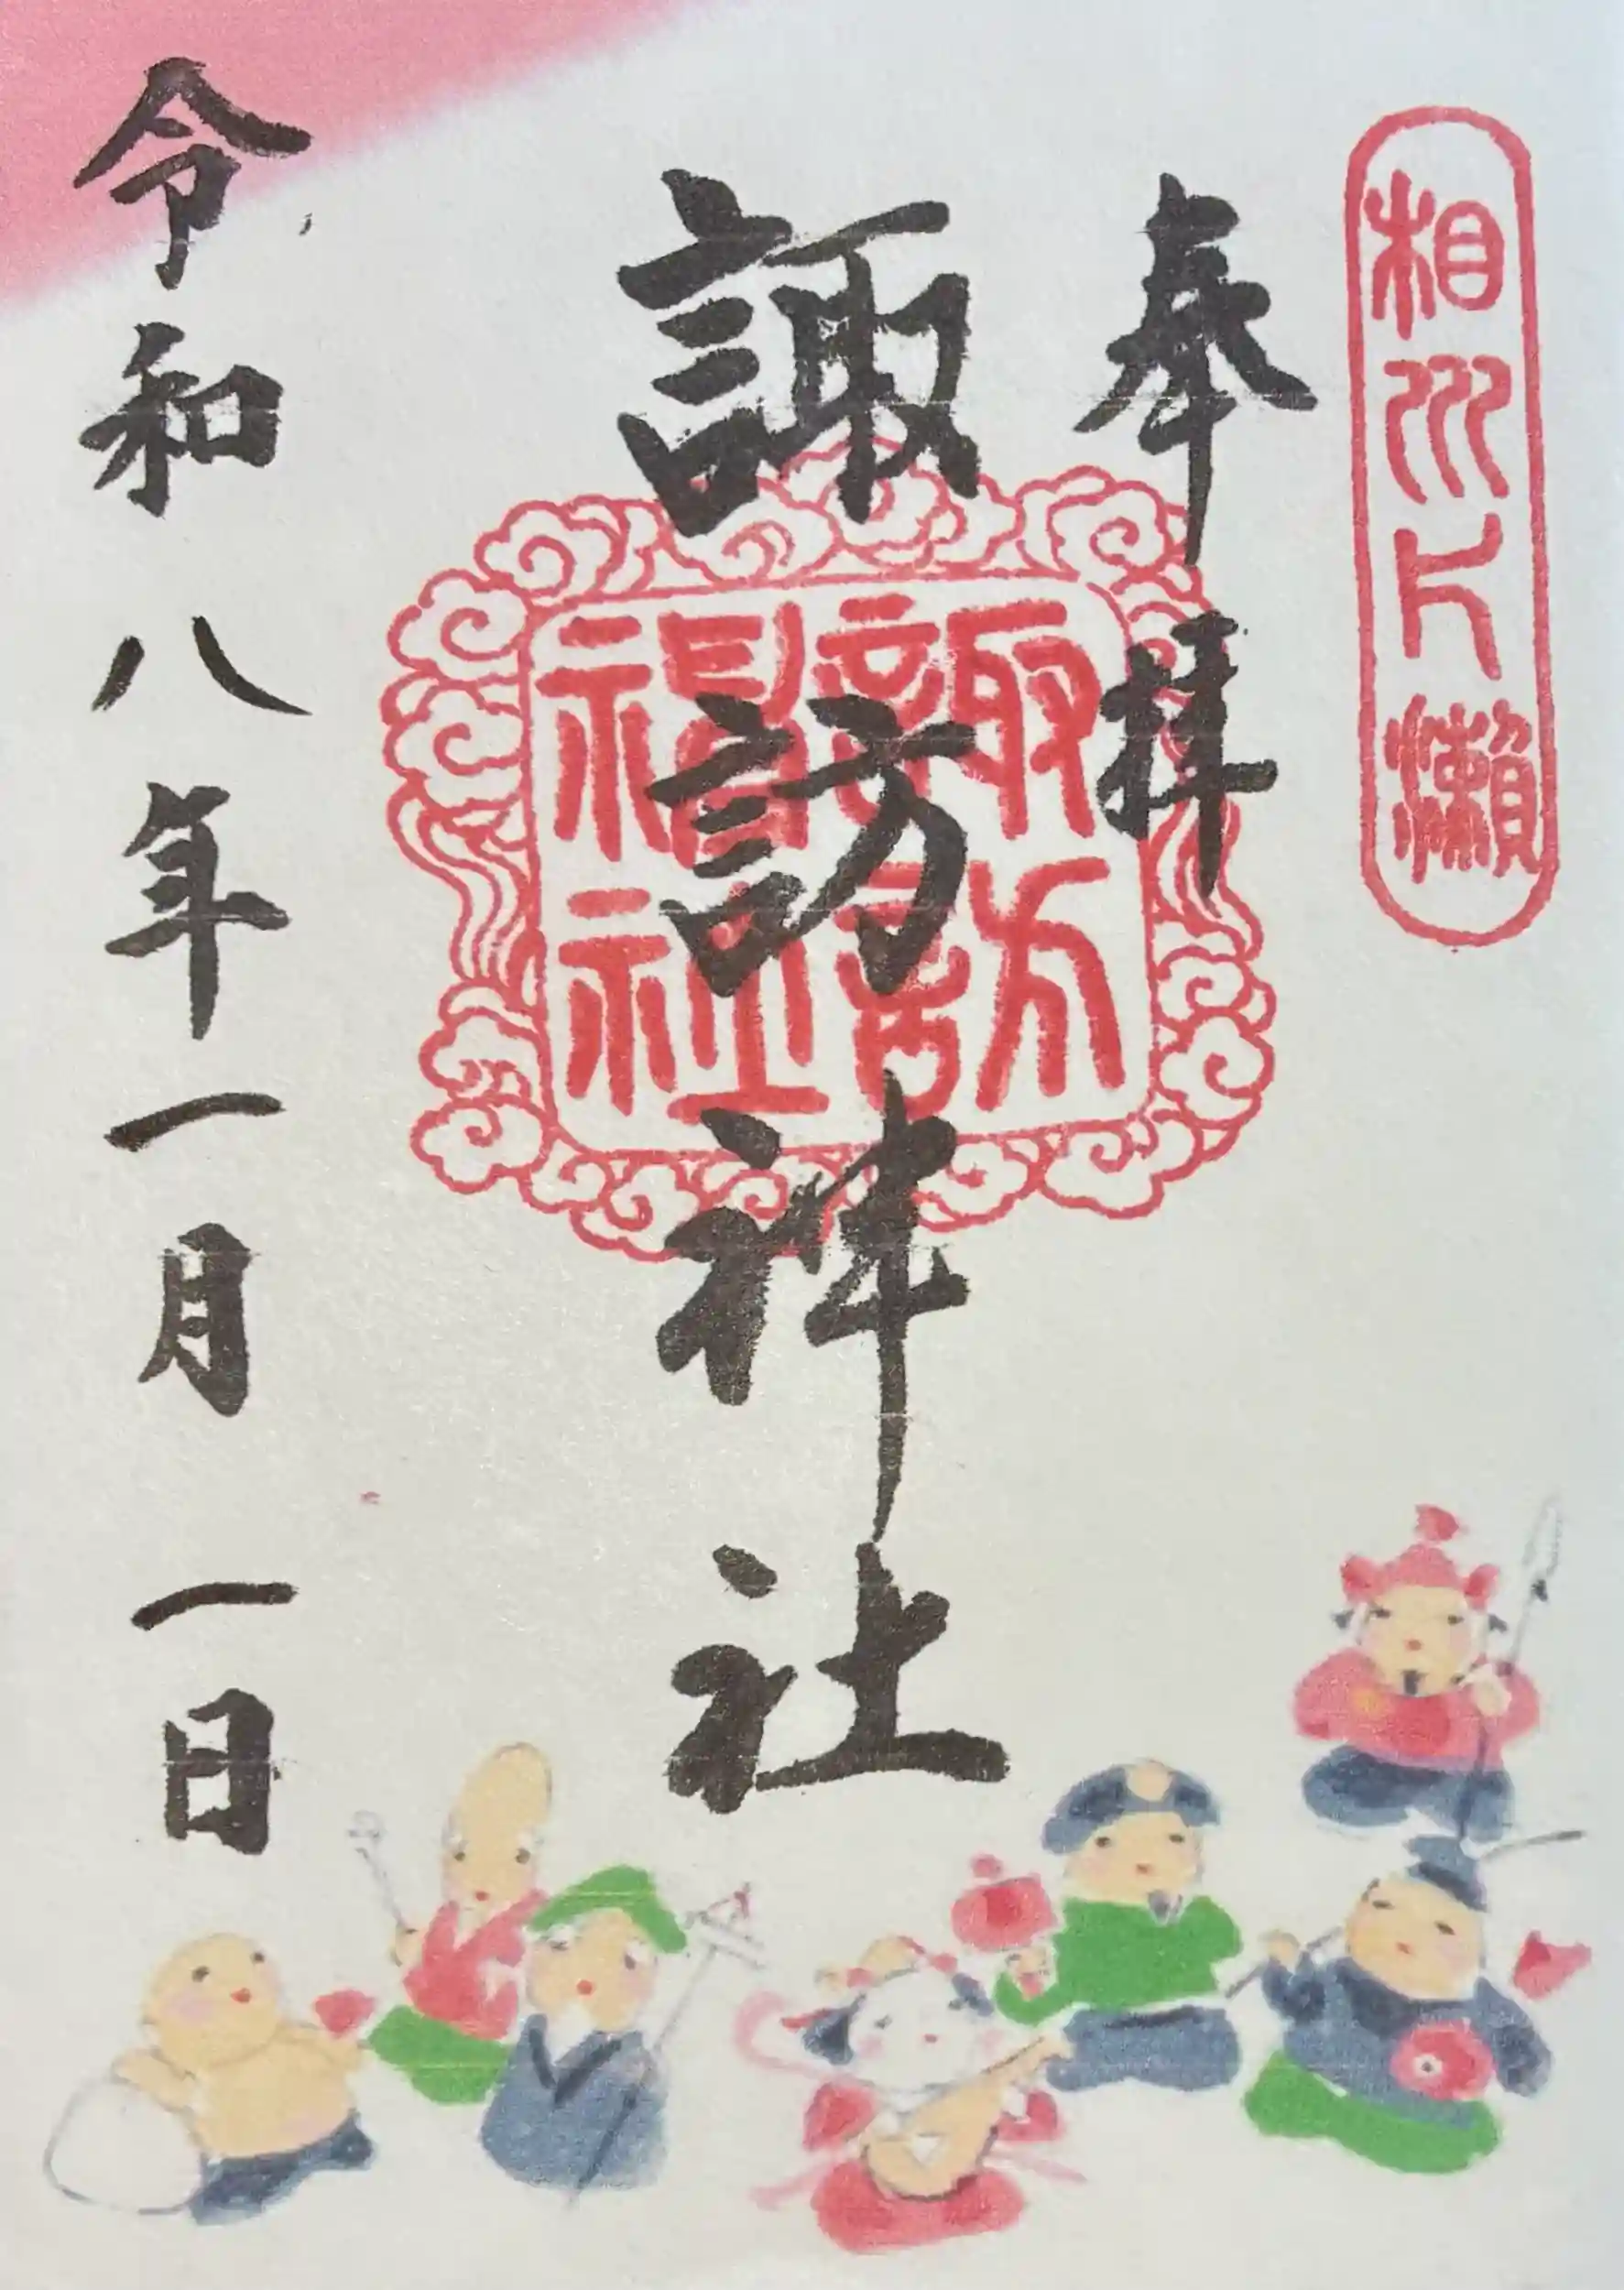 相州片瀬
奉拝
諏訪神社
諏訪
神社
令和八年一月一日